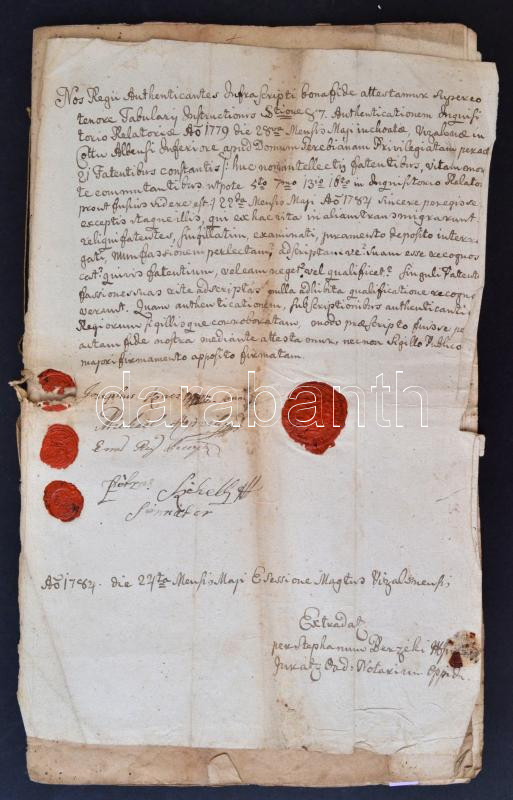 Nos Regii Authenticantes Infrascripti bonafide attestamur Super eo
tenore Tabulary Instructionis Authenticationem Inquisi
torio Relatoriæ Aō 1779 die 28va Mensis Maji inchoatæ, Vizaknæ in
Cottu Albensi Inferiore apud Domum Privilegiatam
Fatentibus constantis hic non intellectis fatentibus, vitam mor
te commutantibus utpote 4to 7mo 13io 16to in Inquisitorio Relator
prout fusius videre est 22da Mensis Maji Aō 1784 Sincere peregisse
exceptis itaque illis, qui ex hac vita in aliam transmigrarunt
reliqui fatentes, singillatim, examinati, juramento deposito interr
gati, num fassionem perlectam, adscriptam ve suam esse recognos
cat quivis fatentium, vel eam neget vel qualificet Singuli Fatent
fassiones suas rite adscriptas nulla adhibita qualificatione recogno
verunt. Quam authenticationem, subscriptionibus authenticanti
Regiorum sigillisque corroboratam, modo præscripto fuisse pe
actam fide nostra mediante attestamur, nec non Sigillo Publico
majori firmamento apposito firmatam.
darabanth
Josephus
Petrus Székelly
Sennator
Aō 1784. die 24ta Mensis Maji E Sessione Magtus Vizaknensis
Extradat
per Stephanum Berzeki
Jurat Ord. Notarium Oppidi